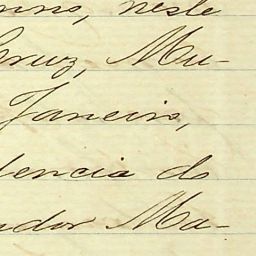 anno, neste
Cruz, Mu-
Janeiro,
dencia do
ador Ma-